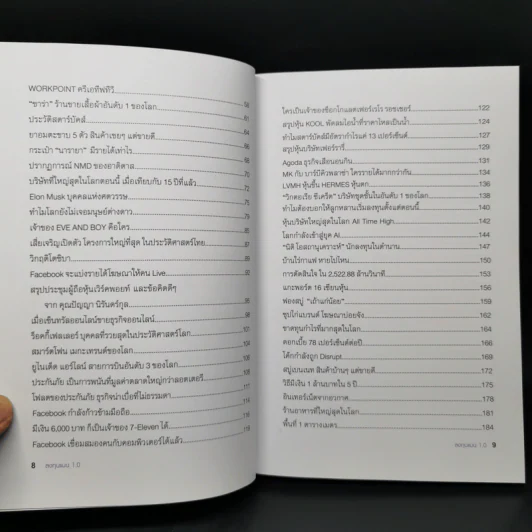 WORKPOINT ครีเอทีฟทีวี
"ซาร่า" ร้านขายเสื้อผ้าอันดับ 1 ของโลก 58
ประวัติสตาร์บัคส์ 61
ยาอมตะขาบ 5 ตัว สินค้าเชยๆ แต่ขายดี 64
กระเป๋า "นารายา" มีรายได้เท่าไร
ปรากฏการณ์ NMD ของอาดิดาส 70
บริษัทที่ใหญ่สุดในโลกตอนนี้ เมื่อเทียบกับ 15 ปีที่แล้ว 72
Elon Musk บุคคลแห่งศตวรรษ
ทำไมโลกยังไม่เจอมนุษย์ต่างดาว
เจ้าของ EVE AND BOY คือใคร
เสี่ยเจริญเปิดตัว โครงการใหญ่ที่สุด ในประวัติศาสตร์ไทย
วิกฤติโตชิบา
Facebook จะแบ่งรายได้โฆษณาให้คน Live
สรุปประชุมผู้ถือหุ้นเวิร์คพอยท์ และข้อคิดดีๆ
จาก คุณปัญญา นิรันดร์กุล
เมื่อเซ็นทรัลออนไลน์ขายธุรกิจออนไลน์
ร็อคกี้เฟลเลอร์ บุคคลที่รวยสุดในประวัติศาสตร์โลก
สมาร์ตโฟน เมกะเทรนด์ของโลก
ยูไนเต็ด แอร์ไลน์ สายการบินอันดับ 3 ของโลก
ประกันภัย เป็นการพนันที่มูลค่าตลาดใหญ่กว่าลอตเตอรี่
โฟลตของประกันภัย ธุรกิจน่าเบื่อที่ไม่ธรรมดา
Facebook กำลังก้าวข้ามมือถือ 114
มีเงิน 6,000 บาท ก็เป็นเจ้าของ 7-Eleven ได้ 116
Facebook เชื่อมสมองคนกับคอมพิวเตอร์ได้แล้ว 119
8 ลงทุนแมน 1.0
ใครเป็นเจ้าของช็อกโกแลตเฟอร์เรโร รอชเชอร์ 122
สรุปหุ้น KOOL พัดลมไอน้ำที่ราคาไหลเป็นน้ำ 124
ทำไมสตาร์บัคส์มีอัตรากำไรแค่ 13 เปอร์เซ็นต์ 127
สรุปหุ้นบริษัทเฟอร์รารี่ 129
Agoda ธุรกิจเสือนอนกิน 131
MK กับ บาร์บีคิวพลาซ่า ใครรายได้มากกว่ากัน 134
LVMH หุ้นขึ้น HERMES หุ้นตก 136
"วิกตอเรีย ซีเคร็ต" บริษัทชุดชั้นในอันดับ 1 ของโลก 138
ทำไมต้องบอกให้ลูกหลานเริ่มลงทุนตั้งแต่ตอนนี้ 140
หุ้นบริษัทใหญ่สุดในโลก All Time High 142
โลกกำลังเข้าสู่ยุค AI 144
"นิติ โอสถานุเคราะห์" นักลงทุนในตำนาน 147
บ้านไร่กาแฟ หายไปไหน 150
การตัดสินใจ ใน 2,522 88 ล้านวินาที 153
แกะพอร์ต 16 เซียนหุ้น 156
ฟองสบู่ "เถ้าแก่น้อย" 159
ซุปไก่แบรนด์ โฆษณาบ่อยจัง 162
ขาดทุนกำไรที่มากสุดในโลก 164
ดอกเบี้ย 78 เปอร์เซ็นต์ต่อปี 166
โต๊ะกำลังถูก Disrupt 169
สบู่เบนเนท สินค้าบ้านๆ แต่ขายดี 172
วิธีมีเงิน 1 ล้านบาทใน 5 ปี 175
อินเทอร์เน็ตจากอวกาศ 178
ร้านอาหารที่ใหญ่สุดในโลก 181
พื้นที่ 1 ตารางเมตร 184
ลงทุนแมน 1.0 9